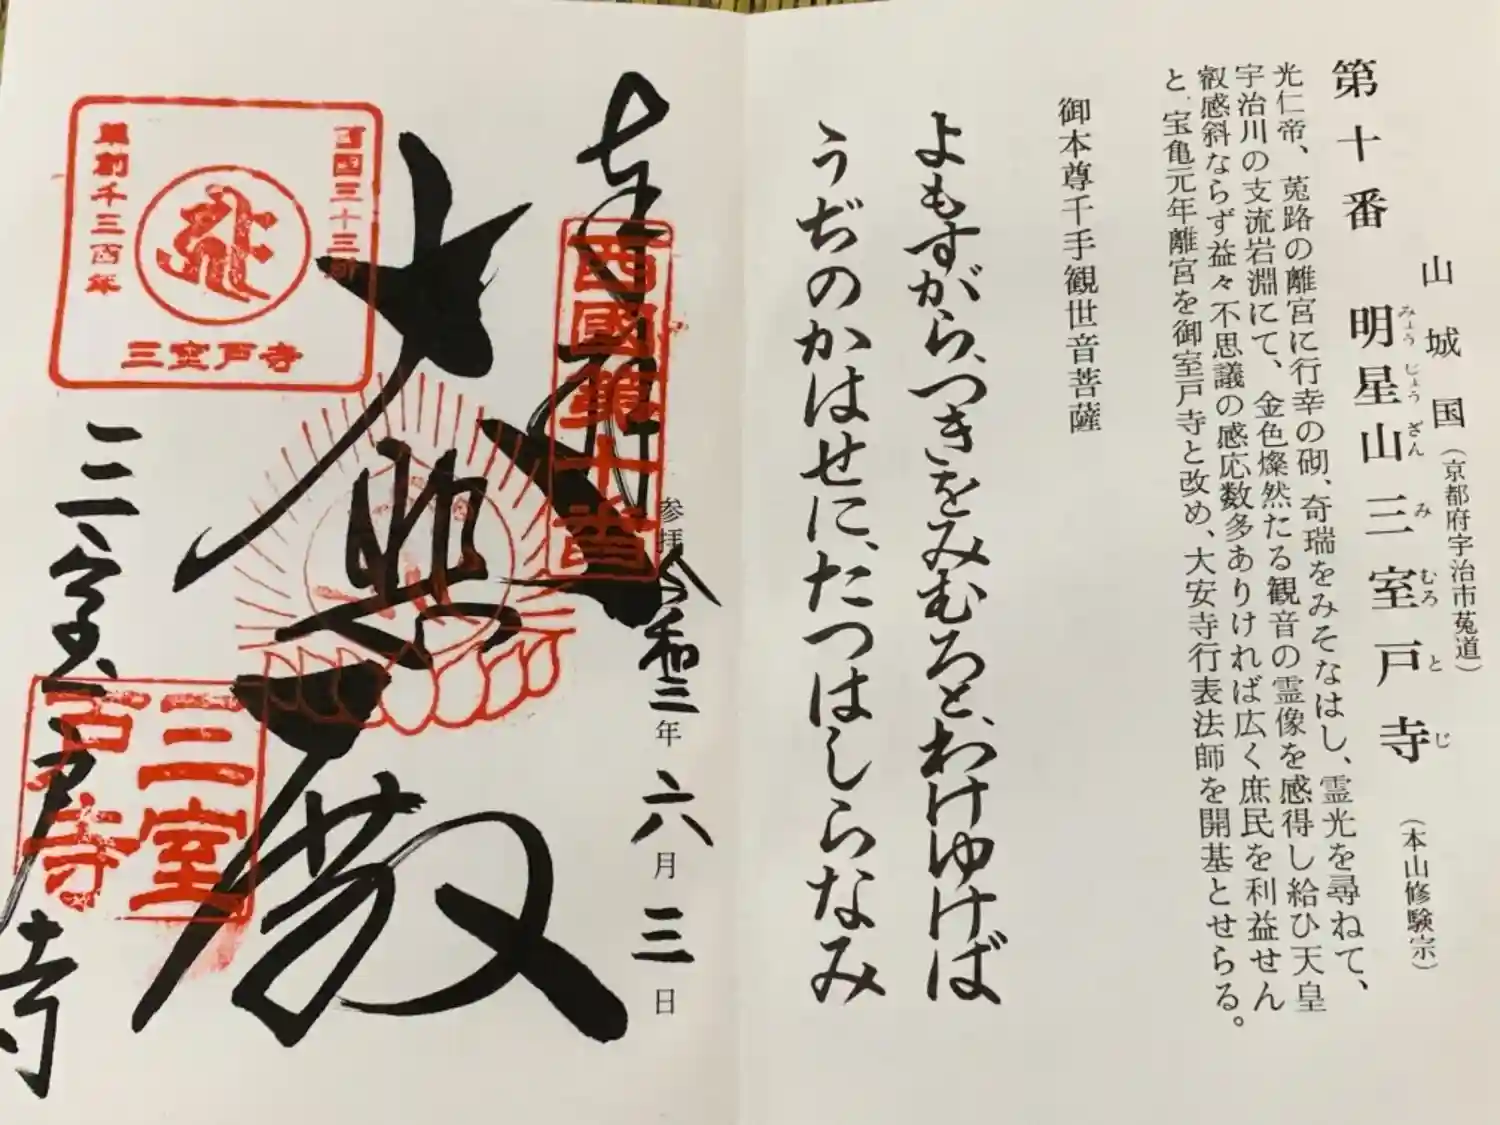 山城国(京都府宇治市菟道)
第十番 明星山三室戸寺 (本山修験宗)
みょうじょうざんみむろとじ
光仁帝、菟路の離宮に行幸の砌、奇瑞をみそなはし、霊光を尋ねて、
宇治川の支流岩淵にて、金色燦然たる観音の霊像を感得し給ひ天皇
叡感斜ならず益々不思議の感応数多ありければ広く庶民を利益せん
と、宝亀元年離宮を御室戸寺と改め、大安寺行表法師を開基とせらる。
御本尊千手観世音菩薩
よもすがら、つきをみむろと、わけゆけば
うぢのかはせに、たつはしらなみ
参拝 令和二年六月三日
奉拝
西國第十番
大悲殿
西国三十三所
草創千三百年
三室戸寺
三室戸寺
三室戸寺